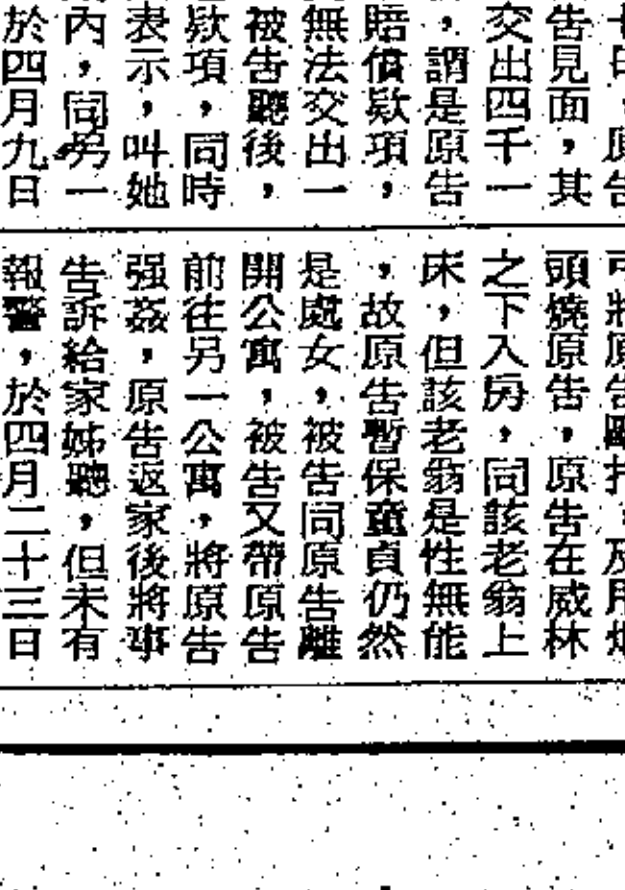 七日，原告
告見面，其
交出四千一
，謂是原告
賠償欵項，
無法交出一
被告聽後，
欵項，同時
表示，叫她
內，同另一
於四月九日
可將原告毆打，及用烟
頭燒原告，原告在威林
之下入房，同該老翁上
床，但該老翁是性無能
，故原告暫保童貞仍然
是處女，被告同原告離
開公寓，被告又帶原告
前往另一公寓，將原告
强姦，原告返家後將事
告訴給家姊聽，但未有
報警，於四月二十三日